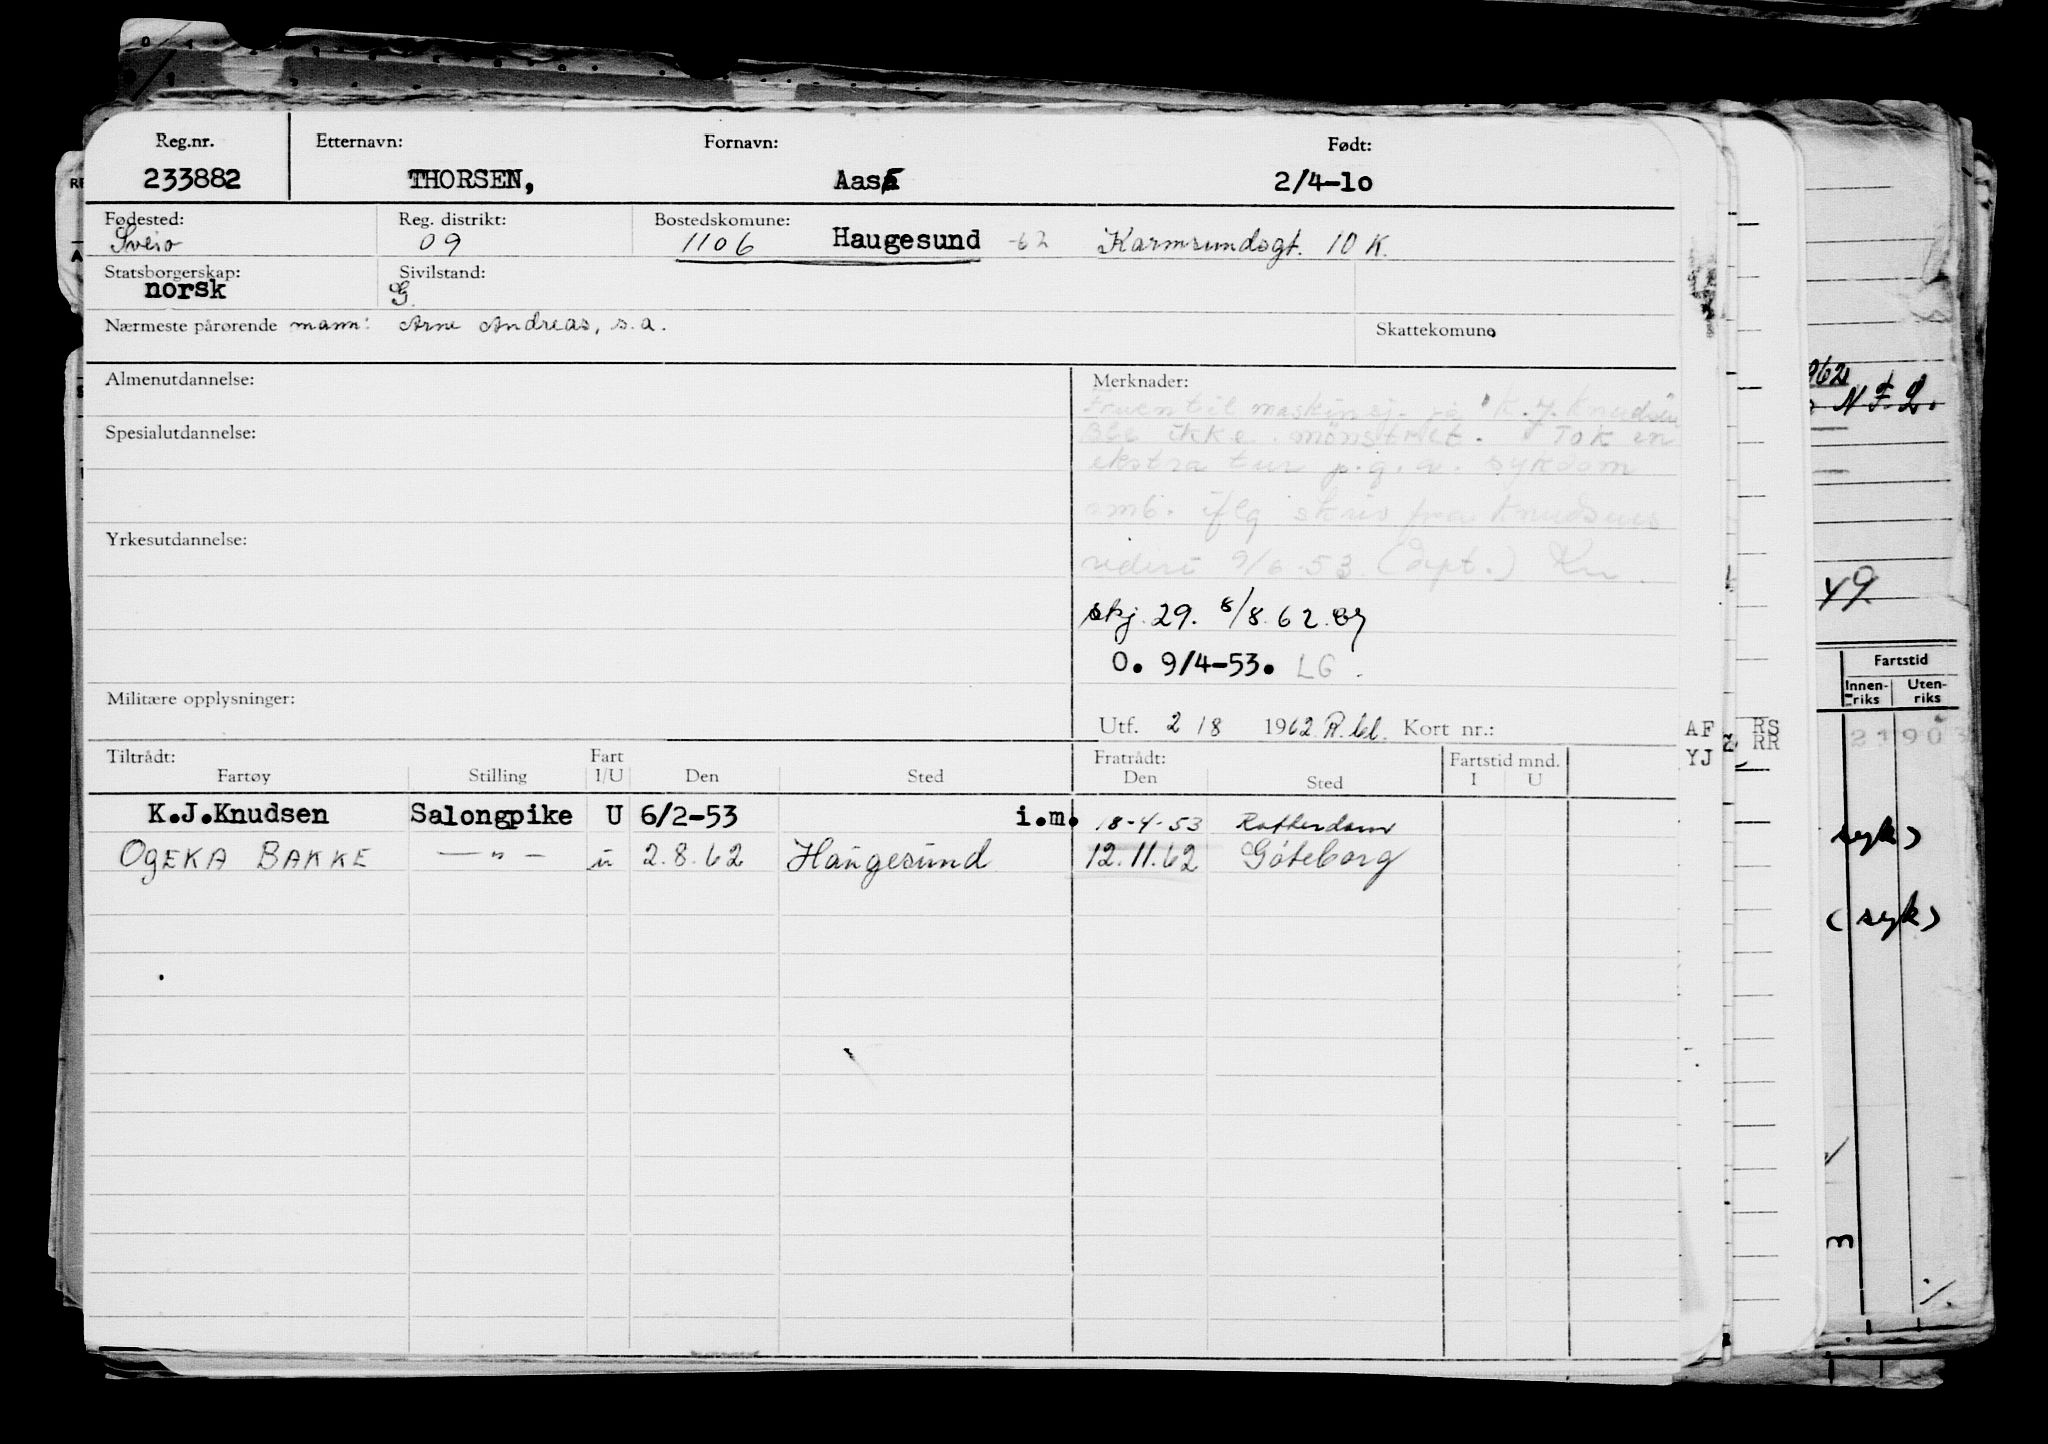 Reg.nr. Etternavn: Fornavn: Født:
233882 THORSEN, Aasa 2/4-10
Fødested: Reg. distrikt: Bostedskomune:
Sveio 09 1106 Haugesund -62 Karmsundsgt. 10 K.
Statsborgerskap: Sivilstand:
norsk G.
Nærmeste pårørende mann: Arne Andreas, s.a. Skattekomune
Almenutdannelse: Merknader:
Fruen til maskinsj. på "K.J. Knudsen
Ble ikke mønstret. Tok en
Spesialutdannelse:
ekstra tur p.g.a. sykdom
omb. iflg skriv fra Knudsens
Yrkesutdannelse:
rederi 9/6-53 (dept.) Kn.
skj. 29. 8/8.62.
O. 9/4-53. LG.
Militære opplysninger:
Utf. 2/8 1962 R.bl. Kort nr.:
Tiltrådt: Fart Fratrådt: Fartstid mnd.
Fartøy Stilling I/U Den Sted Den Sted I U
K.J.Knudsen Salongpike U 6/2-53 i.m. 18-4-53 Rotterdam
OGEKA BAKKE —"— u 2.8.62 Haugesund 12.11.62 Göteborg
962
N.F.2.
49
Fartstid
Innen-riks Uten-riks
AF RS
YJ RR
2190
syk)
(syk)
m